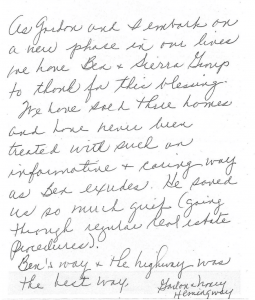 As Gordon and I embark on
a new phase in our lives
we have Ben & Sierra Group
to thank for this blessing.
We have sold three homes
and have never been
treated with such an
informative & caring way
as Ben exudes. He saved
us so much grief (going
through regular real estate
procedures).
Ben's way & the highway was
the best way.
Gordon &
Hemingway